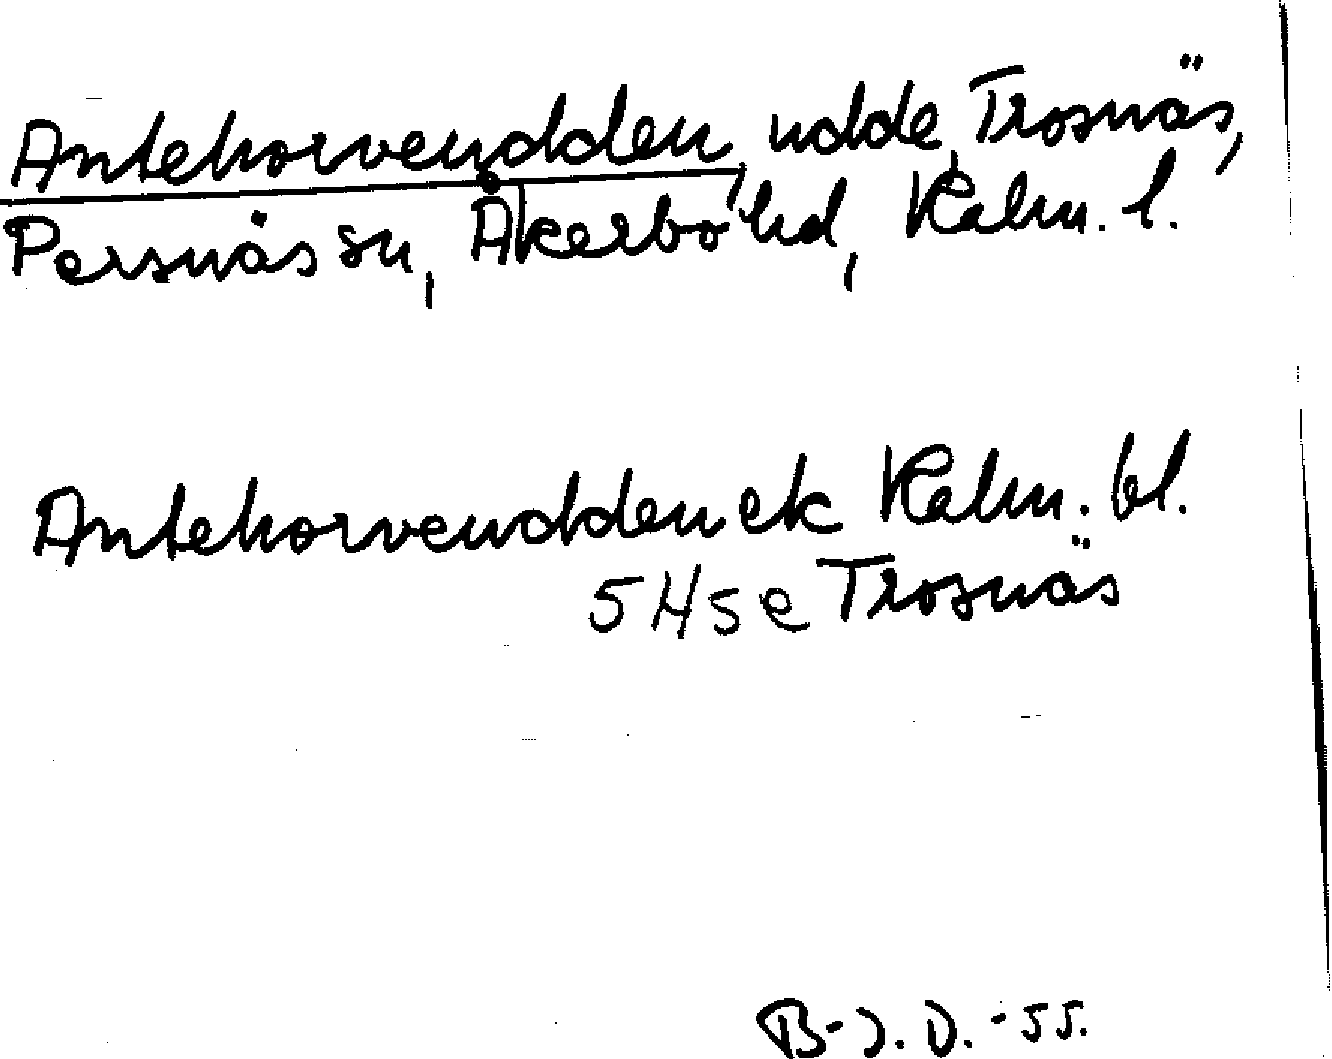 Antekorvendden, udde, Trosnäs,
Persnäs sn, Åkerbo hd, Kalm. l.
Antekorvendden ek Kalm. bl.
5 H s e Trosnäs
B-J. D. -55.